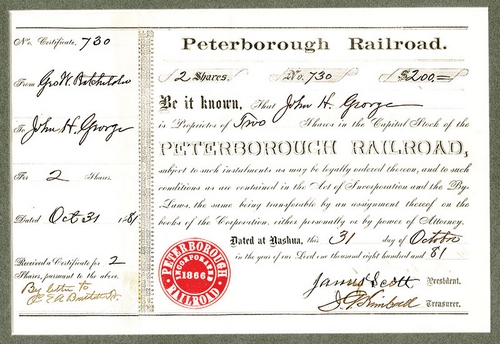 No. Certificate, 730
From Geo. W. Batchelder
To John H. George
For 2 Shares.
Dated Oct 31 1881
Received a Certificate for 2
Shares, pursuant to the above.
By letter to
Peterborough Railroad.
2 Shares. No. 730 $200=
Be it known, That John H. George
is Proprietor of Two Shares in the Capital Stock of the
PETERBOROUGH RAILROAD,
subject to such instalments as may be legally ordered thereon, and to such
conditions as are contained in the Act of Incorporation and the By-
Laws, the same being transferable by an assignment thereof on the
books of the Corporation, either personally or by power of Attorney.
Dated at Nashua, this 31 day of October
in the year of our Lord one thousand eight hundred and 81
PETERBOROUGH
INCORPORATED
1866
RAILROAD
James Scott President.
Treasurer.